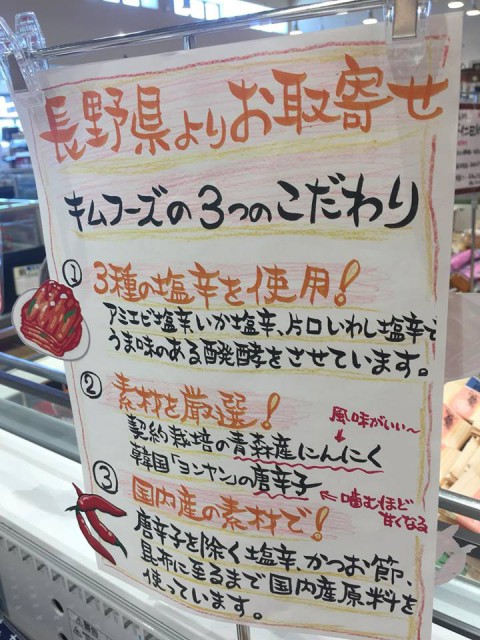 長野県よりお取寄せ
キムフーズの3つのこだわり
① 3種の塩辛を使用!
アミエビ塩辛、いか塩辛、片口いわし塩辛で
うま味のある醗酵をさせています。
② 素材を厳選!
風味がいい〜
契約栽培の青森産にんにく
韓国「ヨンヤン」の唐辛子
←噛むほど
甘くなる
③ 国内産の素材で!
唐辛子を除く塩辛、かつお節、
昆布に至るまで国内産原料を
使っています。